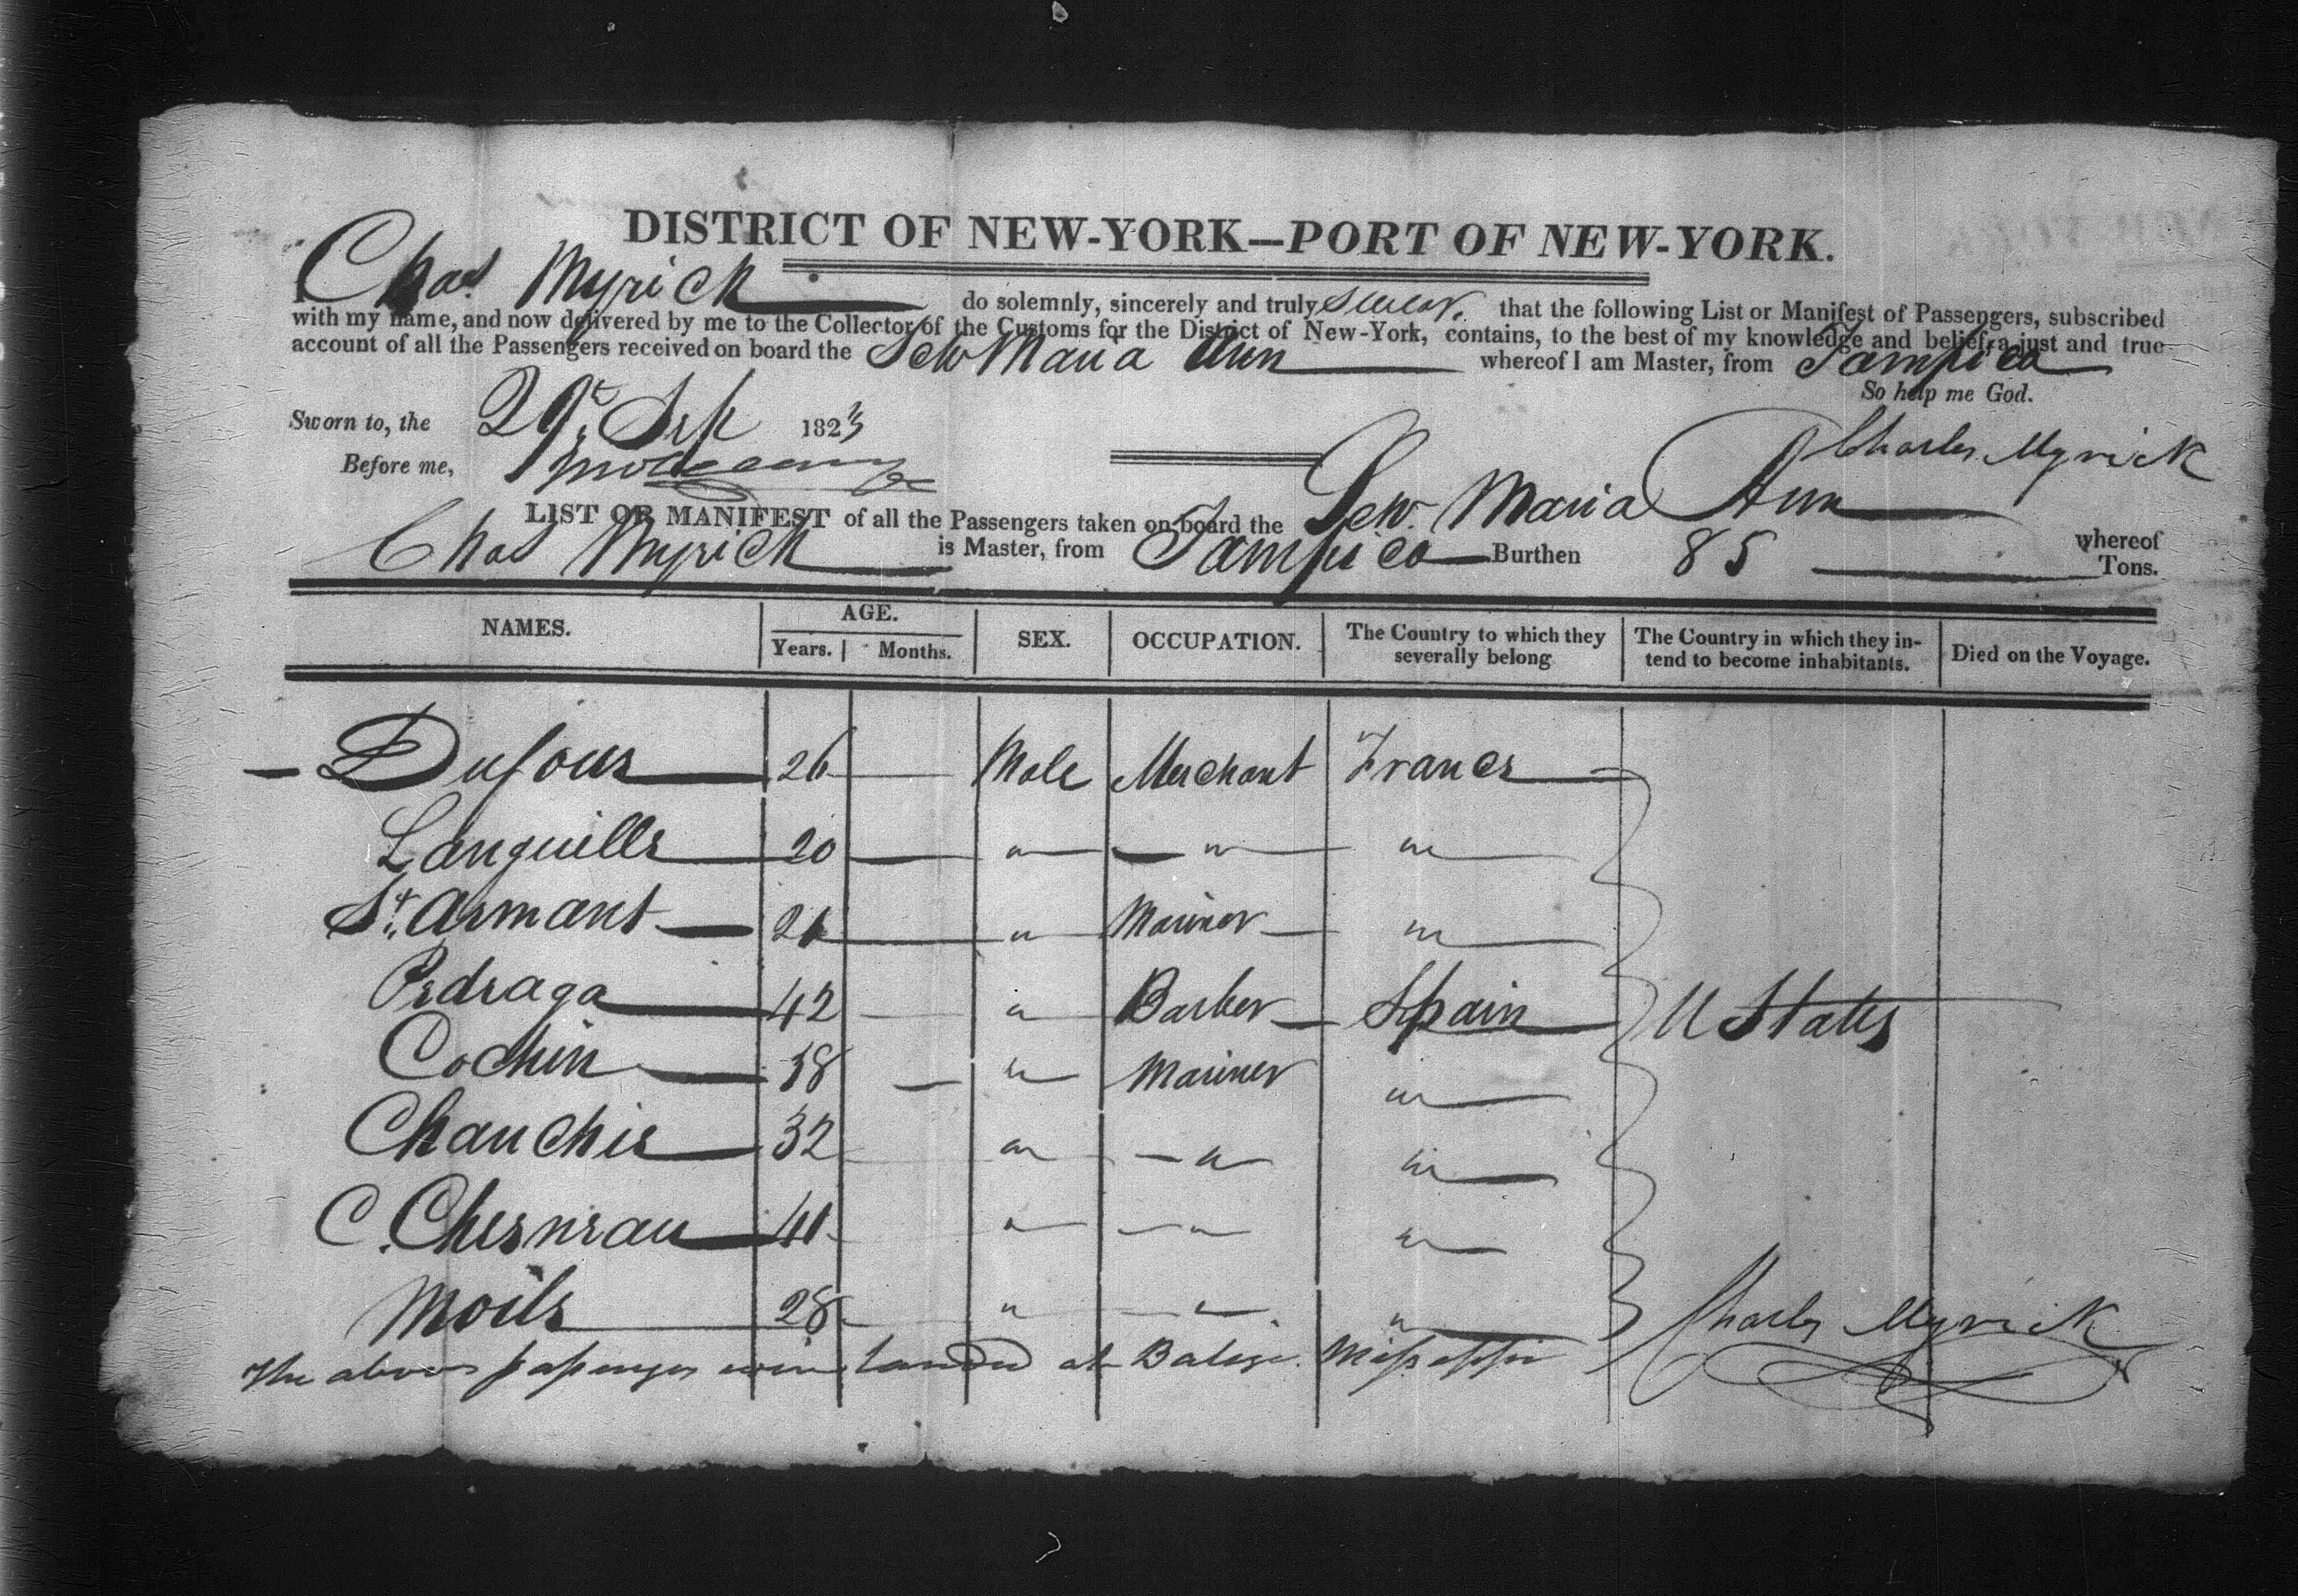 DISTRICT OF NEW-YORK—PORT OF NEW-YORK.
I Chas. Myrick do solemnly, sincerely and truly swear. that the following List or Manifest of Passengers, subscribed
with my name, and now delivered by me to the Collector of the Customs for the District of New-York, contains, to the best of my knowledge and belief, a just and true
account of all the Passengers received on board the Schr Maria Ann whereof I am Master, from Tampico
So help me God.
Sworn to, the 29t Sep 1823
Charles Myrick
Before me,
LIST OR MANIFEST of all the Passengers taken on board the Schr. Maria Ann whereof
Chas Myrick is Master, from Tampico Burthen 85 Tons.
NAMES. AGE. Years. Months. SEX. OCCUPATION. The Country to which they severally belong The Country in which they intend to become inhabitants. Died on the Voyage.
Dufour 26 Male Merchant France
Languille 20 " " "
St. Armant 21 " Mariner "
Pedraga 42 " Barber Spain U States
Cochin 38 " Mariner "
Chauchie 32 " " "
C. Chesneau 41 " " "
Moile 28 " " "
The above passengers were landed at Balize. Missessippi Charles Myrick